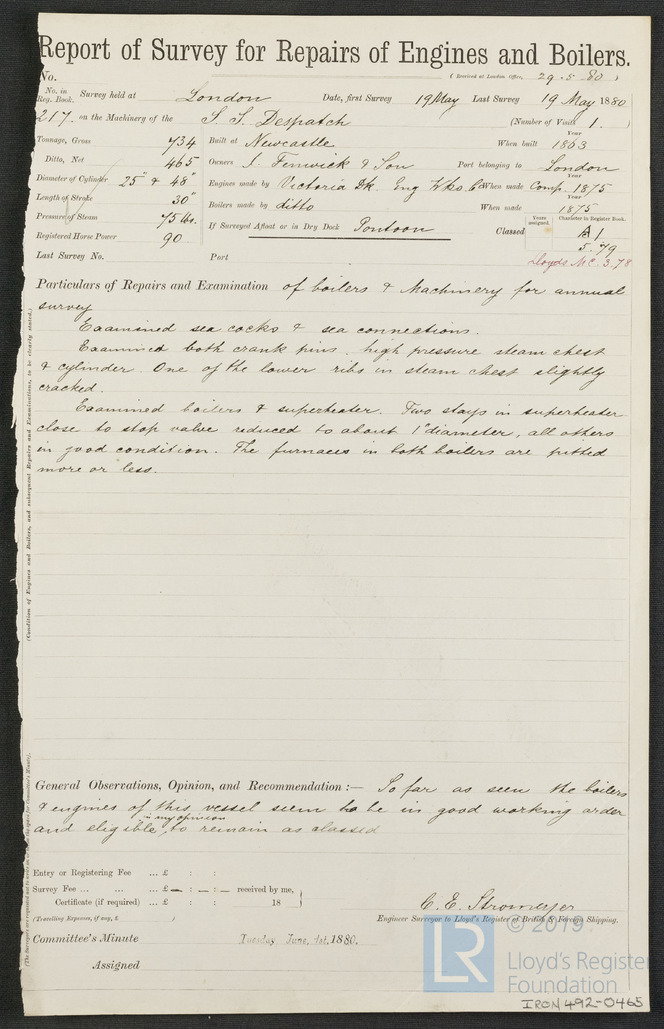 Report of Survey for Repairs of Engines and Boilers.
No. (Received at London Office, 29.5.80)
No. in Reg. Book. Survey held at London Date, first Survey 19 May Last Survey 19 May 1880
217. on the Machinery of the S. S. Despatch (Number of Visits 1.)
Tonnage, Gross 734
Ditto, Net 465
Diameter of Cylinder 25" & 48"
Length of Stroke 30"
Pressure of Steam 75 lbs.
Registered Horse Power 90
Built at Newcastle When built Year 1863
Owners J. Fenwick & Son Port belonging to London
Engines made by Victoria Dk. Eng Wks. Co When made Comp. Year 1875
Boilers made by ditto When made Year 1875
If Surveyed Afloat or in Dry Dock Pontoon Classed Years assigned. Character in Register Book. A1
5.79
Last Survey No. Port Lloyds M.C. 3.78
Particulars of Repairs and Examination of boilers & Machinery for annual
survey
Examined sea cocks & sea connections.
Examined both crank pins, high pressure steam chest
& cylinder. One of the lower ribs in steam chest slightly
cracked.
Examined boilers & superheater. Two stays in superheater
close to stop valve reduced to about 1" diameter, all others
in good condition. The furnaces in both boilers are pitted
more or less.
(Condition of Engines and Boilers, and subsequent Repairs and Examinations, to be clearly stated.)
General Observations, Opinion, and Recommendation :— So far as seen the boilers
& engines of this vessel seem to be in good working order
and eligible, in my opinion, to remain as classed
Entry or Registering Fee ... £ : :
Survey Fee ... ... ... £ — : — : — received by me,
Certificate (if required) ... £ : : 18
(Travelling Expenses, if any, £ )
C. E. Stromeyer
Engineer Surveyor to Lloyd's Register of British & Foreign Shipping.
Committee's Minute Tuesday, June, 1st, 1880.
Assigned
LR © 2019
Lloyd's Register
Foundation
IRON 492-0465